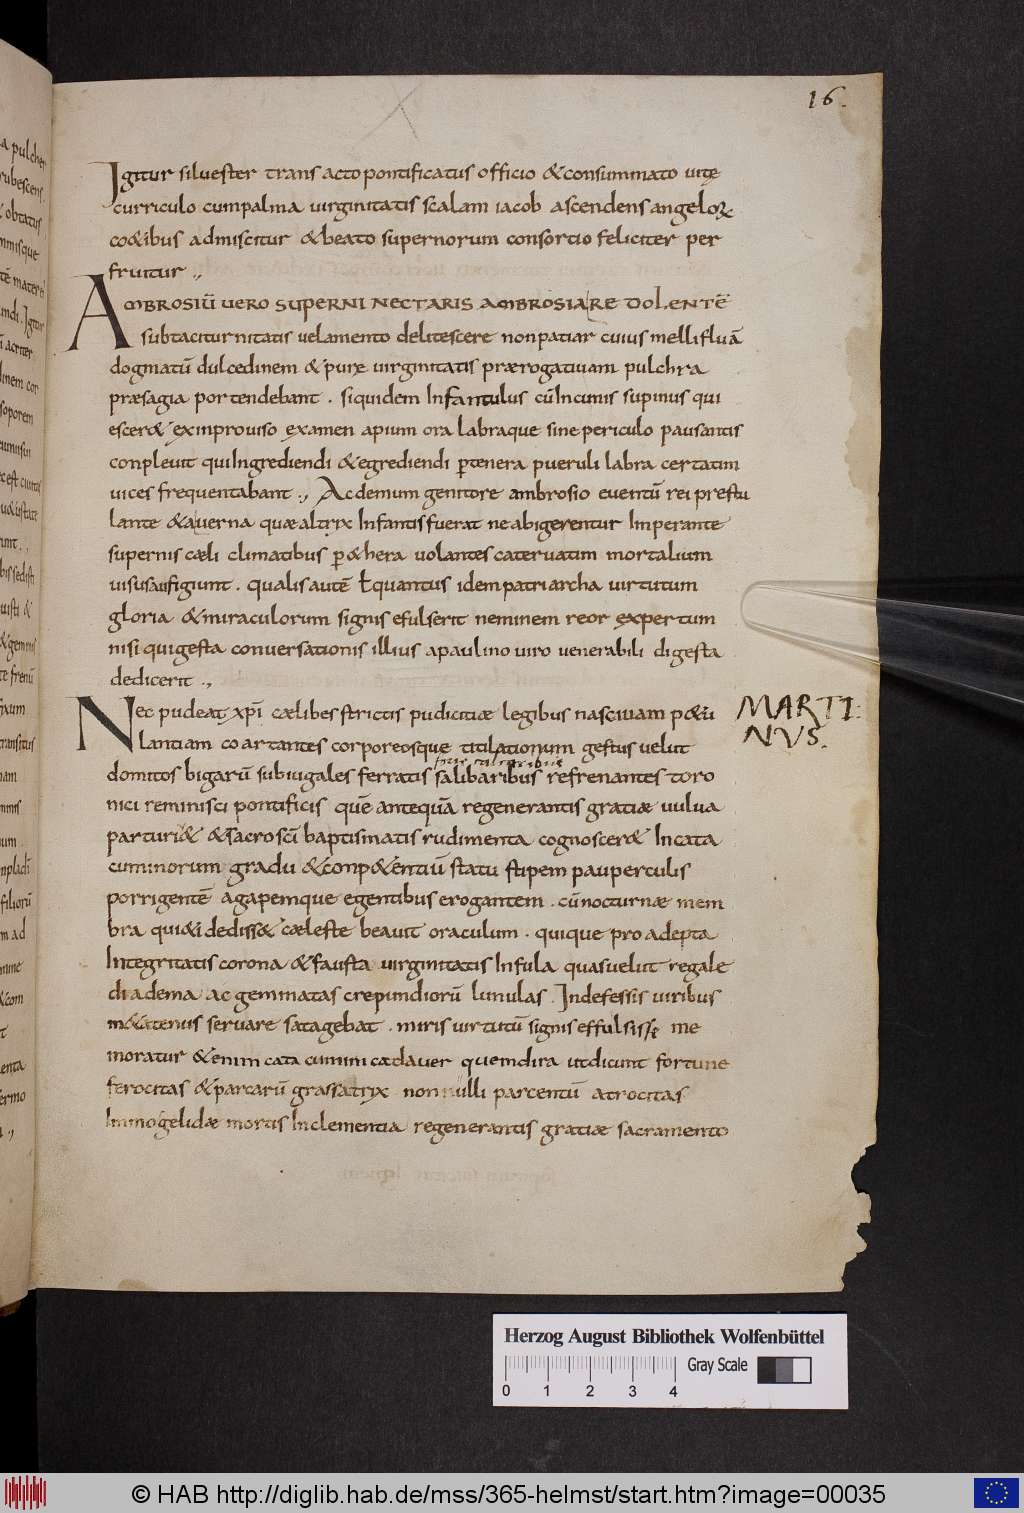 16.
Igitur silvester trans acto pontificatus officio &consummato vitę
curriculo cumpalma virginitatis scalam iacob ascendens angeloꝝ
co&ibus admiscitur &beato supernorum consortio feliciter per
fruitur .,
AMBROSIŪ VERO SUPERNI NECTARIS AMBROSIA RE DOLENTĒ
subtaciturnitatis velamento delitescere nonpatiar cuius mellifluā
dogmatū dulcedinem & puræ virginitatis prærogativam pulchra
præsagia portendebant . siquidem Infantulus cūIncunis supinus qui
escer& eximproviso examen apium ora labraque sine periculo pausantis
conplevit quiIngrediendi &egrediendi ꝑtenera pueruli labra certatim
vices frequentabant ., Acdemum genitore ambrosio eventū rei prestu
lante &averna quæaltrix Infantisfuerat ne abigerentur Imperante
supernis cæli climatibus ꝑ&hera volantes catervatim mortalium
visusaufigiunt . qualis autē & quantus idem patriarcha virtutum
gloria &miraculorum signis efulserit neminem reor expertum
nisi quigesta conversationis illius apaulino viro venerabili digesta
dedicerit .,
Nec pudeat xp̄i cælibes strictis pudicitiæ legibus nascivam p&u
lantiam coartantes corporeosque titilationum gestus velut
domitos bigarū subiugales ferratis salibaribus refrenantes toro
nici reminisci pontificis quē antequā regenerantis gratiæ vulva
parturi& &sacrosci baptismatis rudimenta cognoscer& Incata
cuminorum gradu &conp&entiū statu stipem pauperculis
porrigentē agapemque egentibus erogantem . cū nocturnæ mem
bra qui&i dediss& cæleste beavit oraculum . quique pro adepta
Integritatis corona &fausta virginitatis Infula quasvelut regale
diadema ac gemmatas crepundiorū lunulas . Indefessis viribus
m&atenus servare satagebat . miris virtutū signis effulsisse me
moratur &enim catacumini cadaver quem dira utdicunt fortune
ferocitas &parcarū grassatrix non nulli parcentū atrocitas
Immogelidæ mortis Inclementia regenerantis gratiæ sacramento
MARTI
NVS.
Herzog August Bibliothek Wolfenbüttel
Gray Scale
0 1 2 3 4
© HAB http://diglib.hab.de/mss/365-helmst/start.htm?image=00035